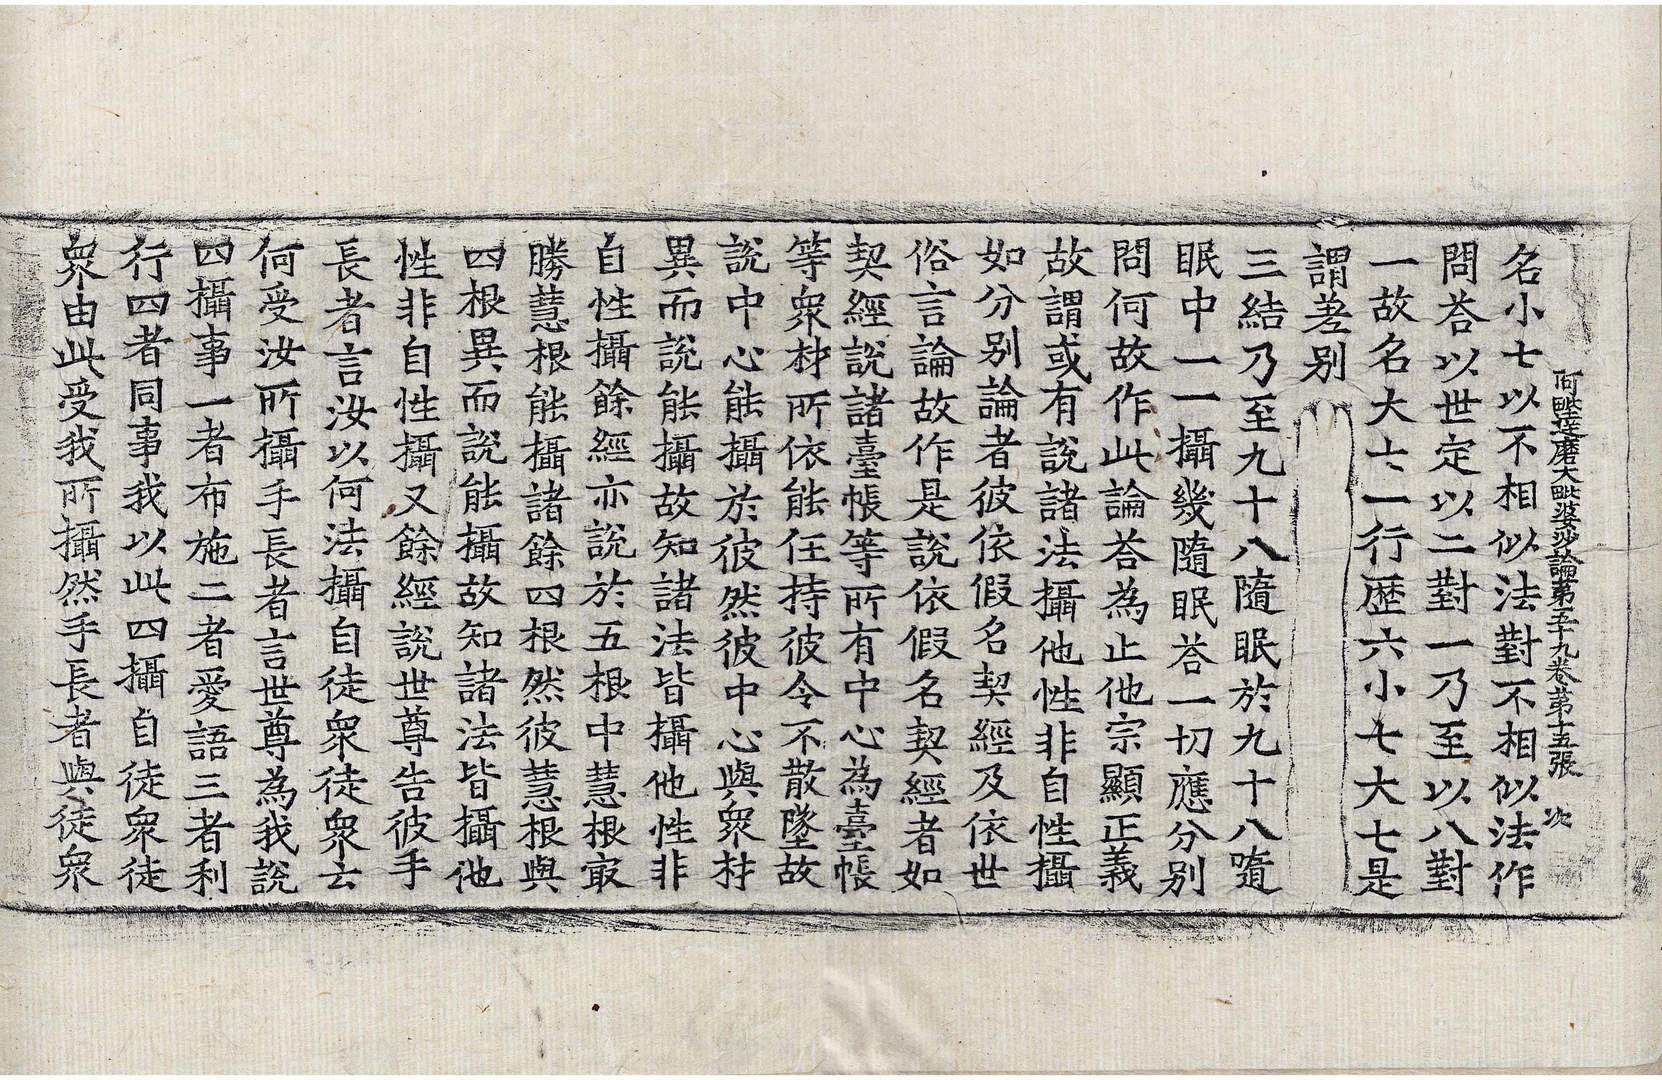 阿毗達磨大毗婆沙論第五十九卷 第十五張 次
名小七以不相似法對不相似法作
問荅以世定以二對一乃至以八對
一故名大七一行歷六小七大七是
謂差別
三結乃至九十八隨眠於九十八隨
眠中一一攝幾隨眠荅一切應分別
問何故作此論荅為止他宗顯正義
故謂或有說諸法攝他性非自性攝
如分別論者彼依假名契經及依世
俗言論故作是說依假名契經者如
契經說諸臺帳等所有中心為臺帳
等衆材所依能任持彼令不散墜故
說中心能攝於彼然彼中心與衆材
異而說能攝故知諸法皆攝他性非
自性攝餘經亦說於五根中慧根冣
勝慧根能攝諸餘四根然彼慧根與
四根異而說能攝故知諸法皆攝他
性非自性攝又餘經說世尊告彼手
長者言汝以何法攝自徒衆徒衆云
何受汝所攝手長者言世尊為我說
四攝事一者布施二者愛語三者利
行四者同事我以此四攝自徒衆徒
衆由此受我所攝然手長者與徒衆